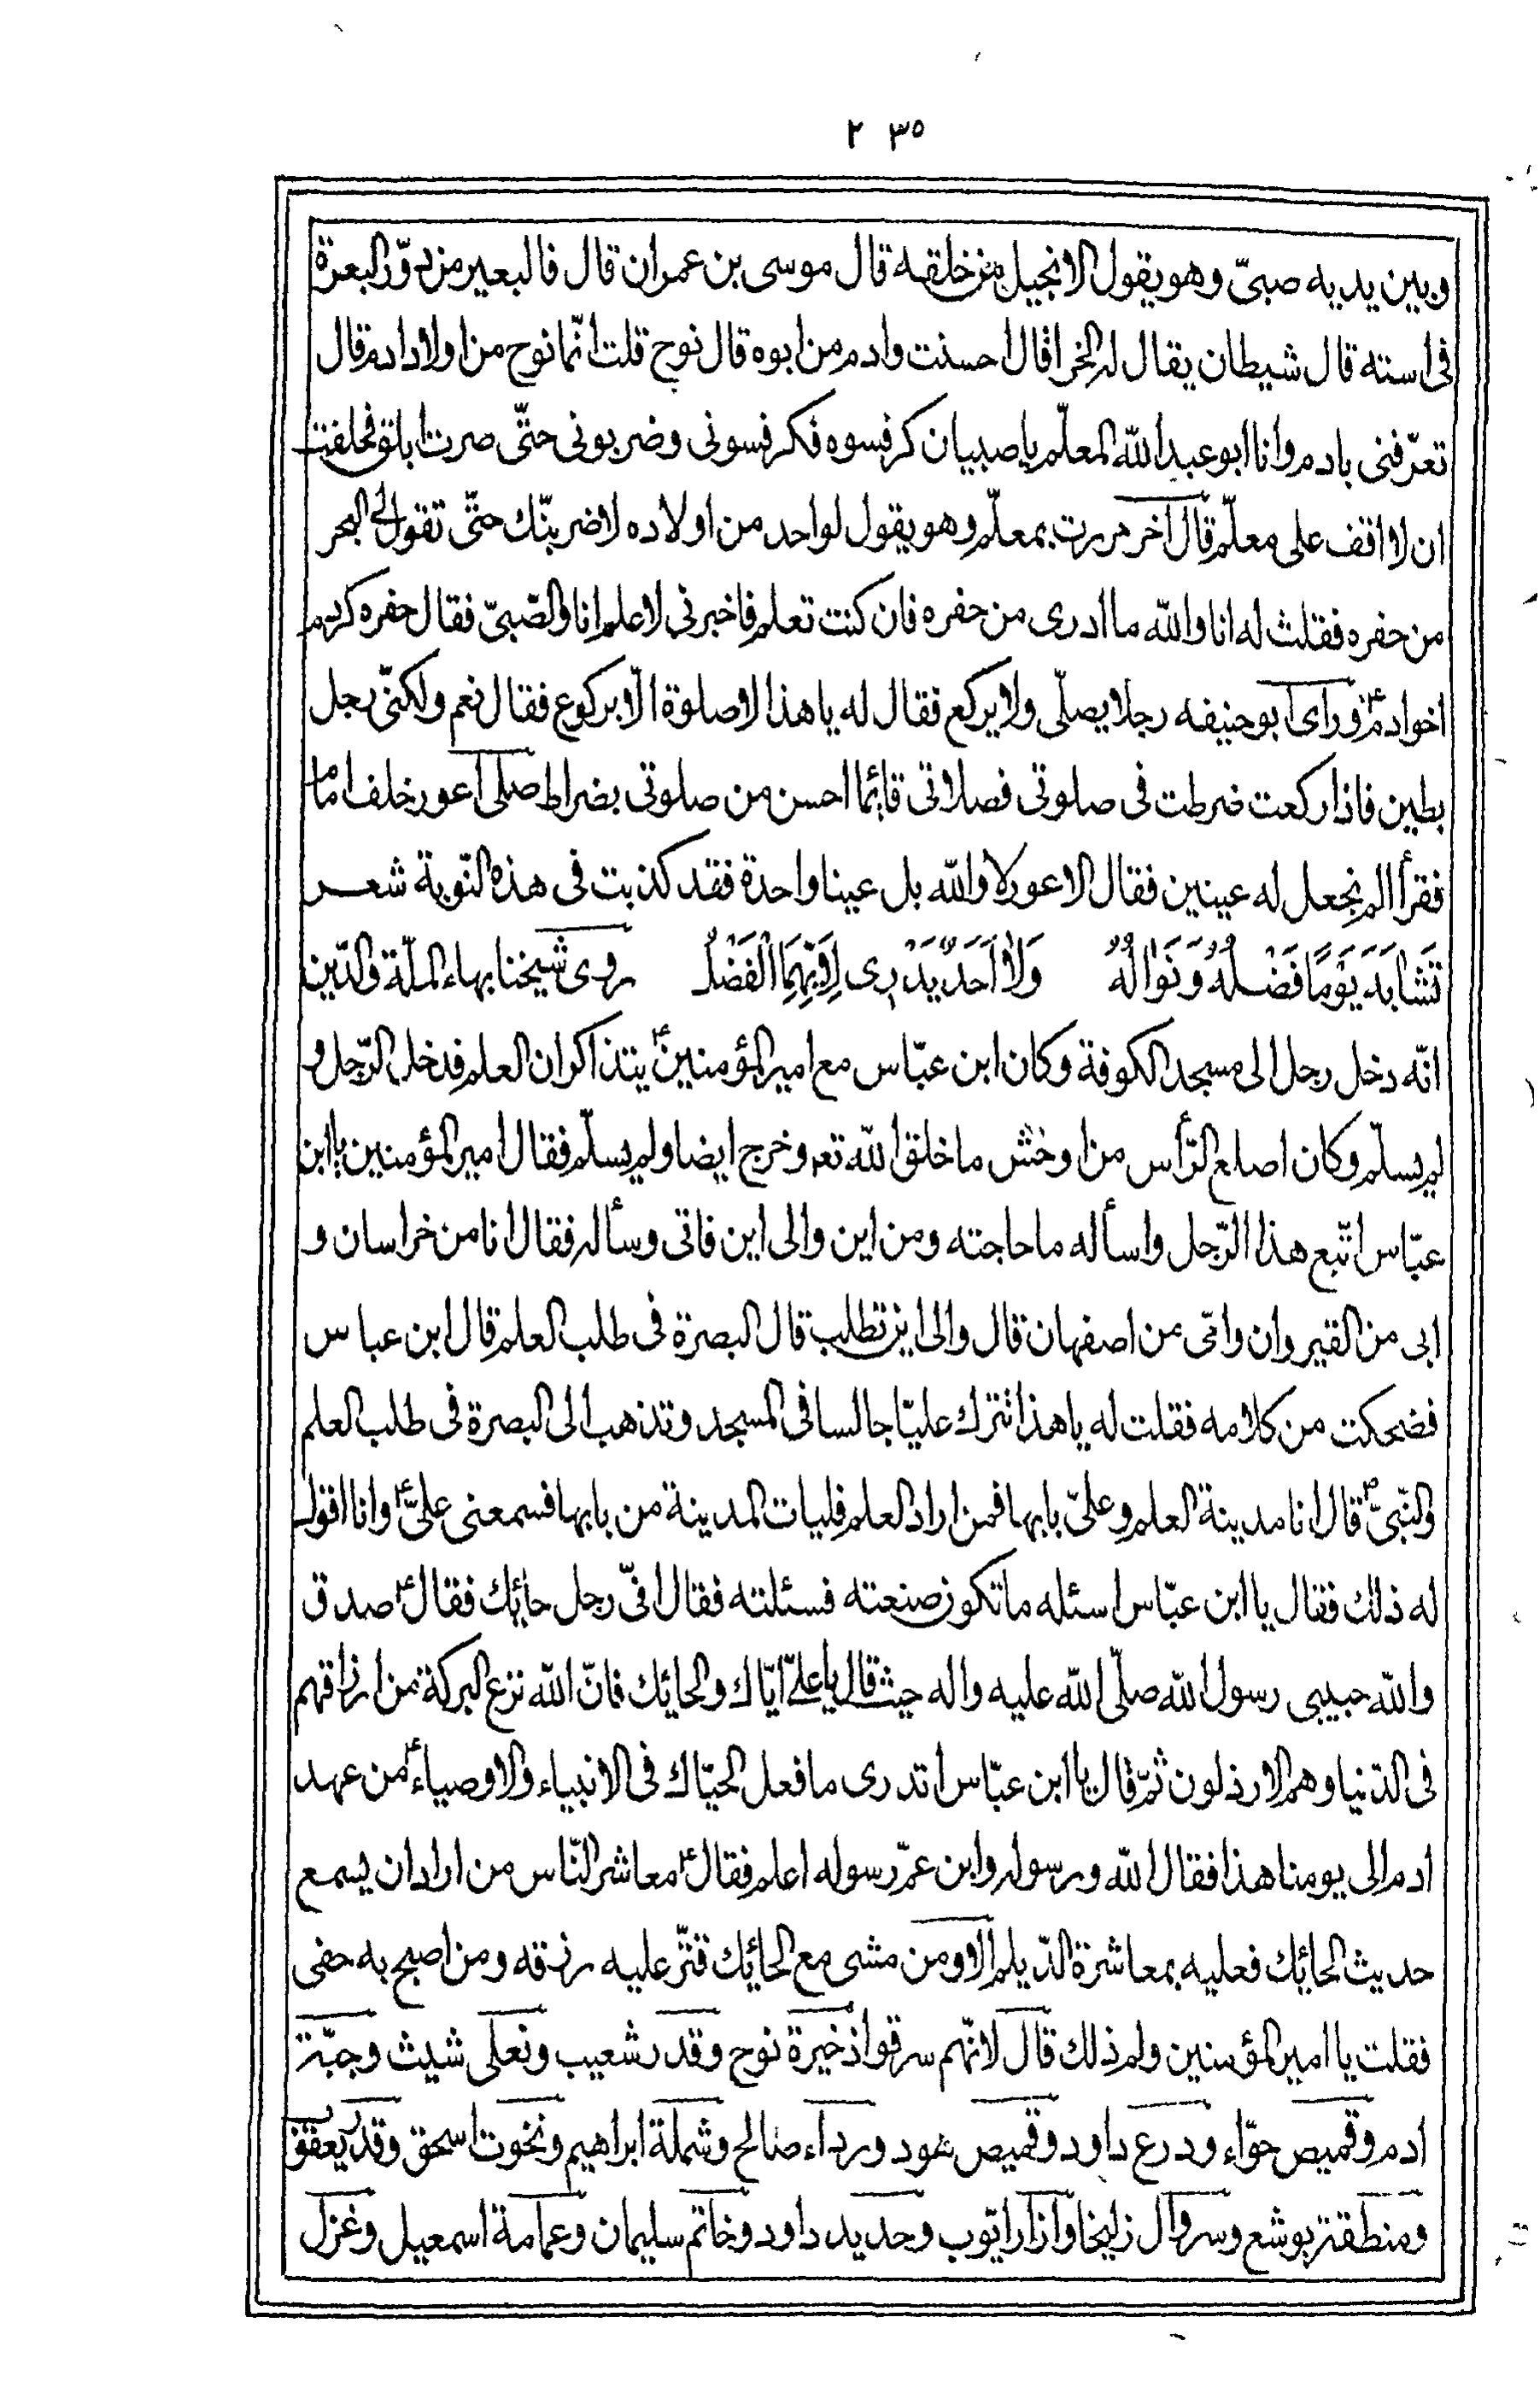 ٢٣٥
وبين يديه صبىّ وهو يقول الانجيل من خلقه قال موسى بن عمران قال فالبعير من دوّر البعرة
فى استه قال شيطان يقال له الخرا قال احسنت وادم من ابوه قال نوح قلت انّما نوح من اولاد ادم قال
تعرّفنى بادم وانا ابو عبد الله المعلّم يا صبيان كرفسوه فكرفسونى وضربونى حتّى صرت ابلق فحلفت
ان لا اقف على معلّم قال آخر مررت بمعلّم وهو يقول لواحد من اولاده لاضربنّك حتّى تقول لى البحر
من حفره فقلت له انا والله ما ادرى من حفره فان كنت تعلم فاخبرنى لاعلم انا والصّبىّ فقال حفره كردم
اخو ادم ع وراى ابو حنيفه رجلا يصلّى ولا يركع فقال له يا هذا لا صلوة الّا بركوع فقال نعم ولكنّى رجل
بطين فاذا ركعت ضرطت فى صلوتى فصلاتى قائما احسن من صلوتى بضراط صلى اعور خلف امام
فقرأ الم نجعل له عينين فقال الاعور لا والله بل عينا واحدة فقد كذبت فى هذه النّوبة شعـر
تَشَابَهَ يَوْمًا فَضْلُهُ وَنَوَالُهُ وَلَا اَحَدٌ يَدْرِى لِاَيِّهِمَا الْفَضْلُ روى شيخنا بهاء الملّة والدّين
انّه دخل رجل الى مسجد الكوفة وكان ابن عبّاس مع امير المؤمنين ع يتذاكران العلم فدخل الرّجل و
لم يسلّم وكان اصلع الرّأس من اوحش ما خلق الله تعه وخرج ايضا ولم يسلّم فقال امير المؤمنين يا ابن
عبّاس اتّبع هذا الرّجل واسأله ما حاجته ومن اين والى اين فاتى وسأله فقال انا من خراسان و
ابى من القيروان وامّى من اصفهان قال والى اين تطلب قال البصرة فى طلب العلم قال ابن عباس
فضحكت من كلامه فقلت له يا هذا تترك عليّا جالسا فى المسجد وتذهب الى البصرة فى طلب العلم
والنّبىّ ص قال انا مدينة العلم وعلىّ بابها فمن اراد العلم فليات المدينة من بابها فسمعنى علىّ ع وانا اقول
له ذلك فقال يا ابن عبّاس اسئله ما تكون صنعته فسئلته فقال انّى رجل حائك فقال ع صدق
والله حبيبى رسول الله صلّى الله عليه واله حيث قال يا علىّ ايّاك والحائك فانّ الله نزع البركة من ارزاقهم
فى الدّنيا وهم الارذلون ثمّ قال يا ابن عبّاس اتدرى ما فعل الحيّاك فى الانبياء والاوصياء ع من عهد
ادم الى يومنا هذا فقال الله ورسوله وابن عمّ رسوله اعلم فقال ع معاشر النّاس من اراد ان يسمع
حديث الحائك فعليه بمعاشرة الدّيلم الا ومن مشى مع الحائك قتّر عليه رزقه ومن اصبح به جفى
فقلت يا امير المؤمنين ولم ذلك قال لانّهم سرقوا ذخيرة نوح وقدر شعيب ونعلى شيث وجبّة
ادم وقميص حوّاء ودرع داود وقميص هود ورداء صالح وشملة ابراهيم ونخوت اسحق وقدر يعقوب
ومنطقة يوشع وسروال زليخا وازار ايّوب وحديد داود وخاتم سليمان وعمامة اسمعيل وغزل